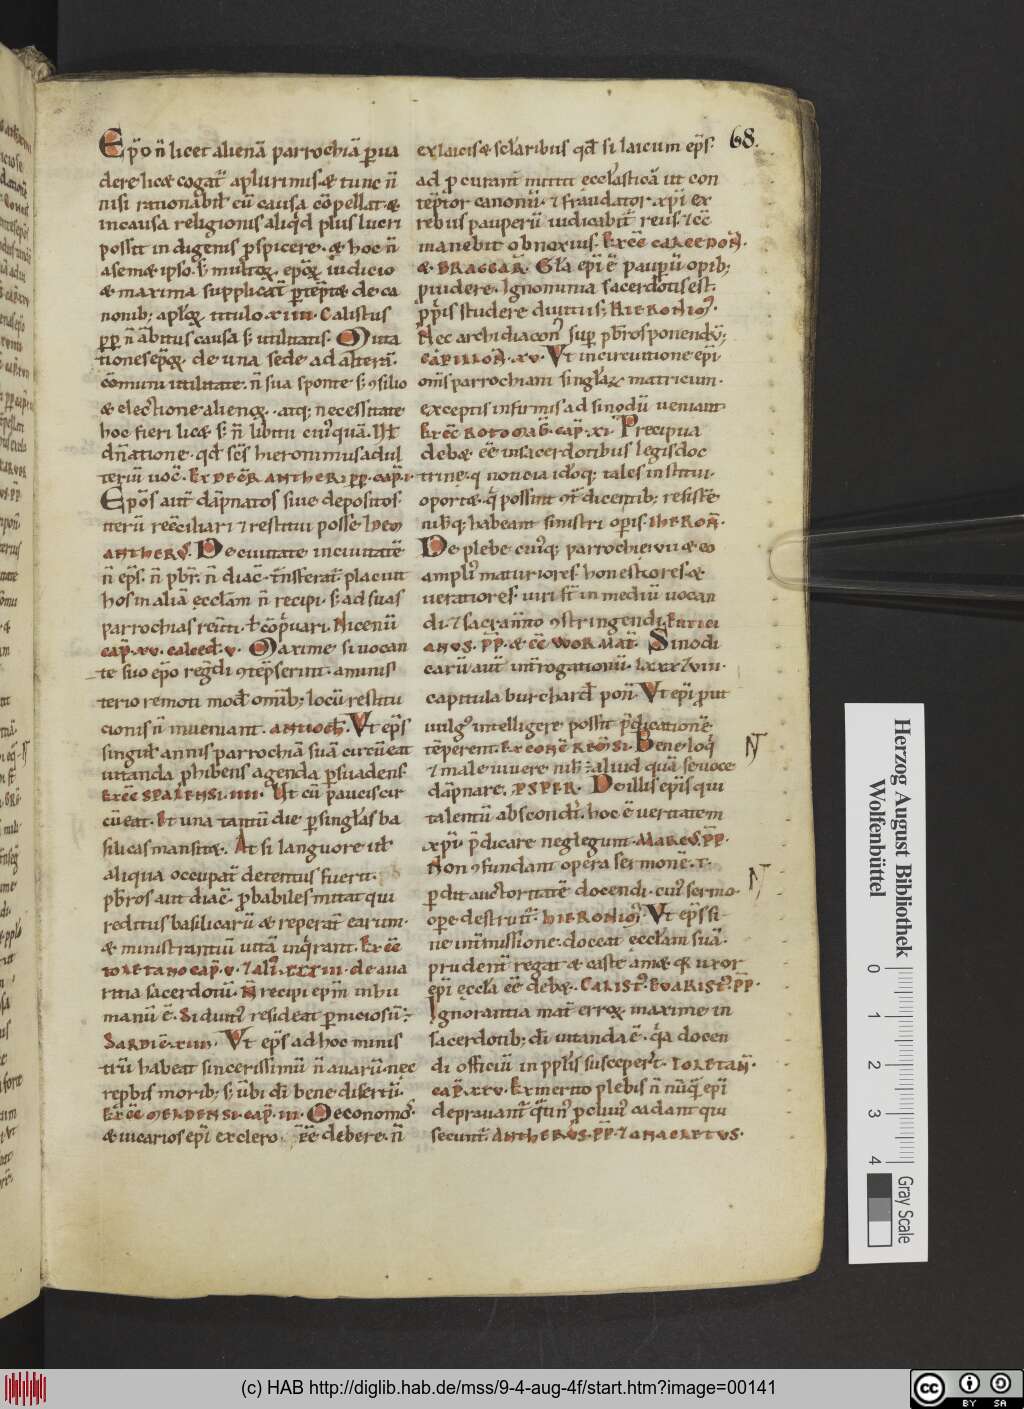 68.
Ep̄o n̄ licet alienā parrochiā ꝑua
dere licæ cogat̄ a plurimis. æ tunc n̄
nisi rationabilit̄ eū causa cōpellat. æ
in causa religionis aliq̄d plus lucri
possit in digenis ꝑspicere. æ hoc n̄
a semæ ipso. s; multoꝝ. ep̄oꝝ iudicio
æ maxima supplicat̄
nonib; apl̄oꝝ titulo. xiiii. Calistus
pp̄ n̄ ābitus causa s; utilitatis. Muta
tiones ep̄oꝝ. de una sede ad alterā.
cōmuni utilitate. n̄ sua sponte s; ꝯsilio
æ electione alienoꝝ. atq; necessitate
hoc fieri licæ s; n̄ libitu cui'quā. ut
dn̄atione. qd̄ sc̄s hieronimus adul
teriū uoc̄. Ex decr̄ Antheri pp̄. cap̄. i.
Ep̄os aut̄ dāpnatos siue depositos.
iterū recc̄iliari ⁊ restitui posse idem
Antherꝰ. De ciuitate in ciuitatē
n̄ ep̄s. n̄ pbr̄. n̄ diac̄. t̄nsferat̄. placuit
hos in aliā ecclam n̄ recipi. s; ad suas
parrochias reuti. ł cōp̄uari. Nicenū
cap̄. xv. calced̄. v. Maxime si uocan
te suo ep̄o regd̄i ꝯtēpserint. a minis
terio remoti mod̄ om̄ib; locū restitu
cionis n̄ inueniant. Antioch̄. Vt ep̄s
singul' annis parrochiā suā circūeat
uitanda phibens agenda ꝑsuadens
Ex cc̄ spalensi. iiii. Ut cū paucis cir
cūeat. Et una tantū die ꝑ singl'as ba
silicas manserit. At si languore ul'
aliqua occupat̄ detentus fuerit.
pbr̄os aut diac̄. ꝓbabiles mittat qui
reditus basilicarū æ reperat̄ earum.
æ ministrantiū uitā inq̄rant. Ex cc̄
toletano cap̄. v. ⁊ ali'. xxxiii. de aua
ritia sacerdotū. N̄ recipi ep̄m in hu
manū ē. Si diuti' resideat ꝑniciosū.
Sardic̄. xiii. Vt ep̄s ad hoc minis
triū habeat sincerissimū n̄ auarū. nec
repbis morib; s; ubi di bene disertū.
Ex cc̄ meldensi. cap̄. iii. Oeconomos.
æ uicarios ep̄i ex clero. eē debere. n̄
ex laicis æ scl'aribus qd̄ si laicum ep̄s.
ad pcurant̄ mittit eccl'asticā ut con
tēptor canonū. ⁊ fraudator xp̄i ex
rebus pauperū iudicabit̄ reus. ⁊ cc̄
manebit obnoxius. Ex cc̄ calcedon̄.
æ. Braccar̄. Gl'a ep̄i ē paup̄ū opib;
puidere. Ignominia sacerdotis est.
ppris studere diuitiis; Hieronim'.
Nec archidiacon' sup̄ pbr̄os ponend̄;
Cap̄illon̄. xv. Vt in circuitione ep̄i
om̄s parrochiani singl'aꝝ matricum.
exceptis infirmis ad sinodū ueniant
Ex cc̄ Rotomaḡ. cap̄. xi. Precipua
debæ eē in sacerdotibus legis doc
trine. q̄ noticia id̄oq; tales institui.
oportæ. q̄ possint ꝯt̄dicentib; resistē
nib̄q; habeant sinistri opis. Iheron̄.
De plebe cui'q; parrochie uiuæ eo
ampli' maturiores honestiores. æ
ueratiores. uiri sīt in mediū uocan
di. ⁊ sacram̄to ꝯstringendi. Euthici
anus. pp̄. æ cc̄ Wormat̄. Sinodi
carū aut̄ int̄rogationū. lxxx⁊viii.
capitula burchard̄ pon̄. Vt ep̄i put
uulg' intelligere possit p̄dicationē
tēperent. Ex conc̄ Rēdsi. Bene loq̄
⁊ male uiuere nih̄ ÷ aliud quā se uoce
dāpnare. PSPER. De illis ep̄is qui
talentū abscondt̄. hoc ē ueritatem
xp̄i p̄dicare neglegunt. Marcꝰ. pp̄.
Non ꝯfundant opera sermonē.
pdit auctoritatē docendi. cui' sermo.
ope destruit̄. Hieronim'. Vt ep̄s si
ne int̄missione doceat eccl'am suā.
prudent̄ regat æ caste amæ qr̄ uxor
ep̄i eccl'a eē debæ. Calist'. Euarist'. pp̄.
Ignorantia mat̄ erroꝝ maxime in
sacerdotib; di' uitanda ē. q̄a docen
di officiū in ppl'is suscepert̄. Toletan̄.
cap̄. xxv. Ex merito plebis n̄ nūq̄ ep̄i
deprauant̄ q̄tin' pcliui' cadant qui
secunt̄. Antherꝰs. pp̄. ⁊ Anacletus.
Herzog August Bibliothek
Wolfenbüttel
0 1 2 3 4
Gray Scale
(c) HAB http://diglib.hab.de/mss/9-4-aug-4f/start.htm?image=00141
cc BY SA